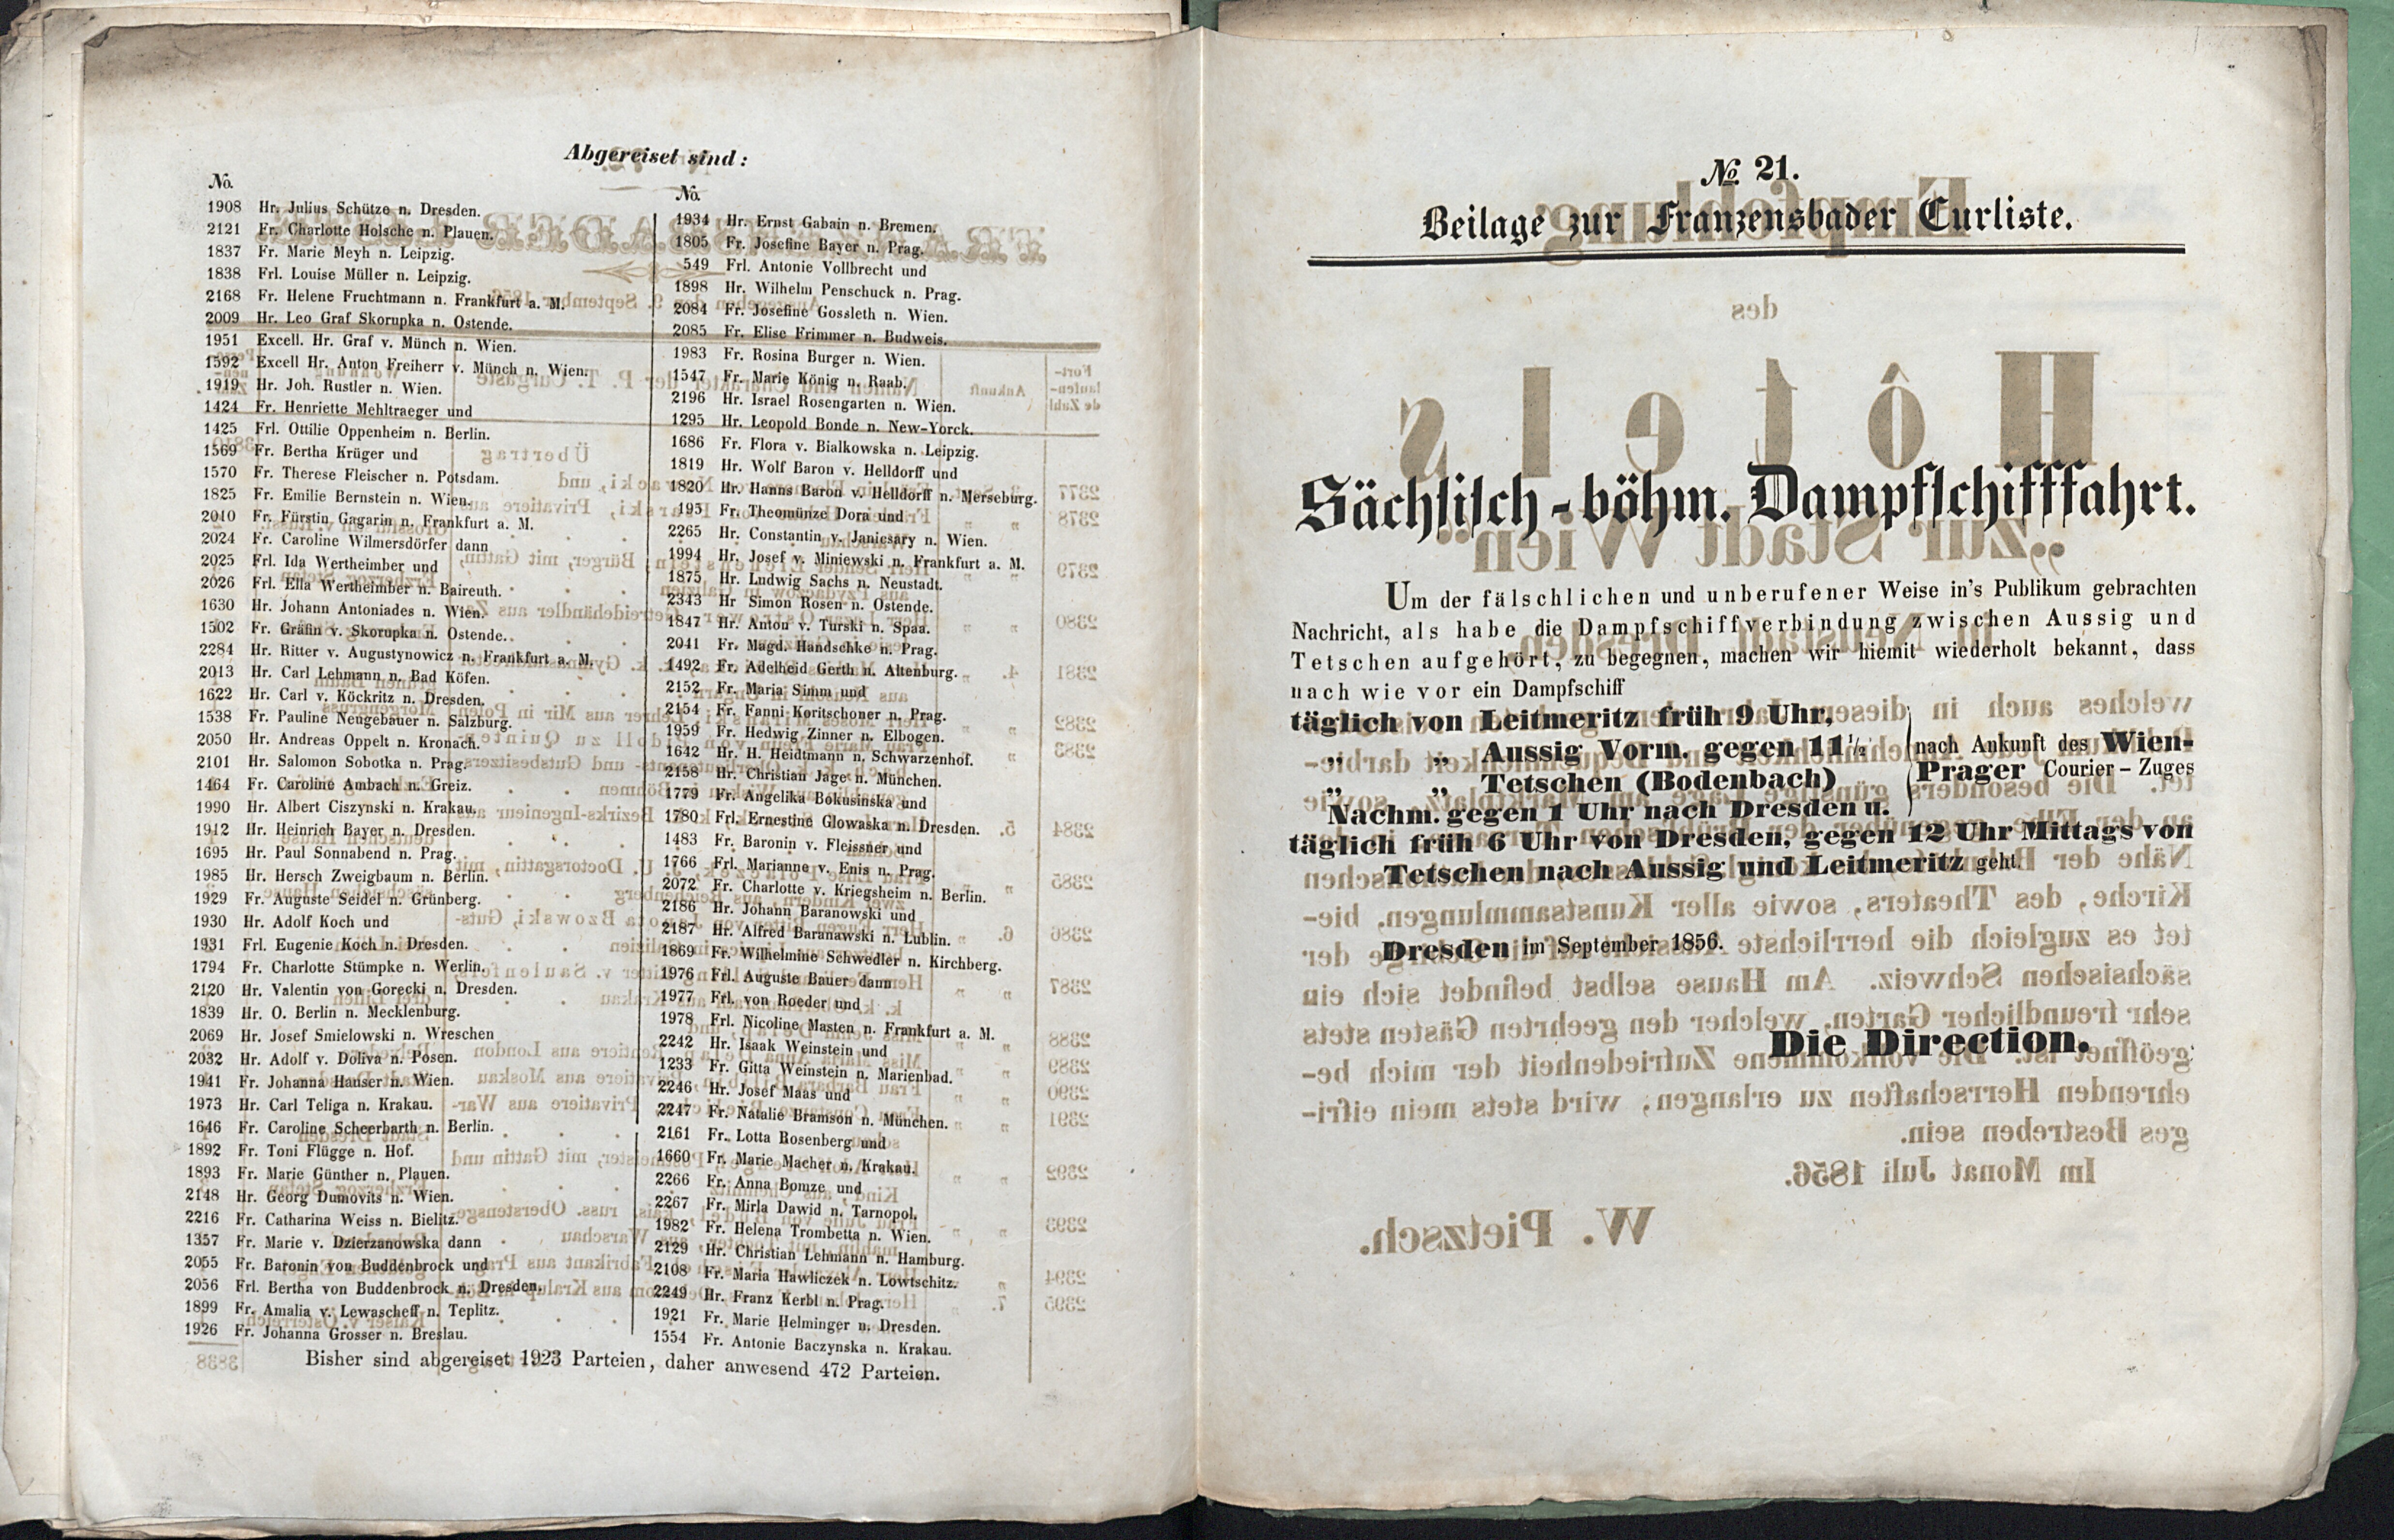 Abgereiset sind:
No.
1908 Hr. Julius Schütze n. Dresden.
2121 Fr. Charlotte Holsche n. Plauen.
1837 Fr. Marie Meyh n. Leipzig.
1838 Frl. Louise Müller n. Leipzig.
2168 Fr. Helene Fruchtmann n. Frankfurt a. M.
2009 Hr. Leo Graf Skorupka n. Ostende.
1951 Excell. Hr. Graf v. Münch n. Wien.
1592 Excell Hr. Anton Freiherr v. Münch n. Wien.
1919 Hr. Joh. Rustler n. Wien.
1424 Fr. Henriette Mehltraeger und
1425 Frl. Ottilie Oppenheim n. Berlin.
1569 Fr. Bertha Krüger und
1570 Fr. Therese Fleischer n. Potsdam.
1825 Fr. Emilie Bernstein n. Wien.
2010 Fr. Fürstin Gagarin n. Frankfurt a. M.
2024 Fr. Caroline Wilmersdörfer dann
2025 Frl. Ida Wertheimber und
2026 Frl. Ella Wertheimber n. Baireuth.
1630 Hr. Johann Antoniades n. Wien.
1502 Fr. Gräfin v. Skorupka n. Ostende.
2284 Hr. Ritter v. Augustynowicz n. Frankfurt a. M.
2013 Hr. Carl Lehmann n. Bad Köfen.
1622 Hr. Carl v. Köckritz n. Dresden.
1538 Fr. Pauline Neugebauer n. Salzburg.
2050 Hr. Andreas Oppelt n. Kronach.
2101 Hr. Salomon Sobotka n. Prag.
1464 Fr. Caroline Ambach n. Greiz.
1990 Hr. Albert Ciszynski n. Krakau.
1912 Hr. Heinrich Bayer n. Dresden.
1695 Hr. Paul Sonnabend n. Prag.
1985 Hr. Hersch Zweigbaum n. Berlin.
1929 Fr. Auguste Seidel n. Grünberg.
1930 Hr. Adolf Koch und
1931 Frl. Eugenie Koch n. Dresden.
1794 Fr. Charlotte Stümpke n. Werlin.
2120 Hr. Valentin von Gorecki n. Dresden.
1839 Hr. O. Berlin n. Mecklenburg.
2069 Hr. Josef Smielowski n. Wreschen
2032 Hr. Adolf v. Doliva n. Posen.
1941 Fr. Johanna Hauser n. Wien.
1973 Hr. Carl Teliga n. Krakau.
1646 Fr. Caroline Scheerbarth n. Berlin.
1892 Fr. Toni Flügge n. Hof.
1893 Fr. Marie Günther n. Plauen.
2148 Hr. Georg Dumovits n. Wien.
2216 Fr. Catharina Weiss n. Bielitz.
1357 Fr. Marie v. Dzierzanowska dann
2055 Fr. Baronin von Buddenbrock und
2056 Frl. Bertha von Buddenbrock n. Dresden.
1899 Fr. Amalia v. Lewascheff n. Teplitz.
1926 Fr. Johanna Grosser n. Breslau.
No.
1934 Hr. Ernst Gabain n. Bremen.
1805 Fr. Josefine Bayer n. Prag.
549 Frl. Antonie Vollbrecht und
1898 Hr. Wilhelm Penschuck n. Prag.
2084 Fr. Josefine Gossleth n. Wien.
2085 Fr. Elise Frimmer n. Budweis.
1983 Fr. Rosina Burger n. Wien.
1547 Fr. Marie König n. Raab.
2196 Hr. Israel Rosengarten n. Wien.
1295 Hr. Leopold Bonde n. New-Yorck.
1686 Fr. Flora v. Bialkowska n. Leipzig.
1819 Hr. Wolf Baron v. Helldorff und
1820 Hr. Hanns Baron v. Helldorff n. Merseburg.
195 Fr. Theomünze Dora und
2265 Hr. Constantin v. Janicsary n. Wien.
1994 Hr. Josef v. Miniewski n. Frankfurt a. M.
1875 Hr. Ludwig Sachs n. Neustadt.
2343 Hr Simon Rosen n. Ostende.
1847 Hr. Anton v. Turski n. Spaa.
2041 Fr. Magd. Handschke n. Prag.
1492 Fr. Adelheid Gerth n. Altenburg.
2152 Fr. Maria Simm und
2154 Fr. Fanni Koritschoner n. Prag.
1959 Fr. Hedwig Zinner n. Elbogen.
1642 Hr. H. Heidtmann n. Schwarzenhof.
2158 Hr. Christian Jage n. München.
1779 Fr. Angelika Bokusinska und
1780 Frl. Ernestine Glowaska n. Dresden.
1483 Fr. Baronin v. Fleissner und
1766 Frl. Marianne v. Enis n. Prag.
2072 Fr. Charlotte v. Kriegsheim n. Berlin.
2186 Hr. Johann Baranowski und
2187 Hr. Alfred Baranawski n. Lublin.
1869 Fr. Wilhelmine Schwedler n. Kirchberg.
1976 Frl. Auguste Bauer dann
1977 Frl. von Roeder und
1978 Frl. Nicoline Masten n. Frankfurt a. M.
2242 Hr. Isaak Weinstein und
1233 Fr. Gitta Weinstein n. Marienbad.
2246 Hr. Josef Maas und
2247 Fr. Natalie Bramson n. München.
2161 Fr. Lotta Rosenberg und
1660 Fr. Marie Macher n. Krakau.
2266 Fr. Anna Bomze und
2267 Fr. Mirla Dawid n. Tarnopol.
1982 Fr. Helena Trombetta n. Wien.
2129 Hr. Christian Lehmann n. Hamburg.
2108 Fr. Maria Hawliczek n. Lowtschitz.
2249 Hr. Franz Kerbl n. Prag.
1921 Fr. Marie Helminger n. Dresden.
1554 Fr. Antonie Baczynska n. Krakau.
Bisher sind abgereiset 1923 Parteien, daher anwesend 472 Parteien.
№ 21.
Beilage zur Franzensbader Curliste.
Sächsisch-böhm. Dampfschifffahrt.
Um der fälschlichen und unberufener Weise in's Publikum gebrachten
Nachricht, als habe die Dampfschiffverbindung zwischen Aussig und
Tetschen aufgehört, zu begegnen, machen wir hiemit wiederholt bekannt, dass
nach wie vor ein Dampfschiff
täglich von Leitmeritz früh 9 Uhr,
„ „ Aussig Vorm. gegen 11½
„ „ Tetschen (Bodenbach)
Nachm. gegen 1 Uhr nach Dresden u.
nach Ankunft des Wien-
Prager Courier-Zuges
täglich früh 6 Uhr von Dresden, gegen 12 Uhr Mittags von
Tetschen nach Aussig und Leitmeritz geht.
Dresden im September 1856.
Die Direction.